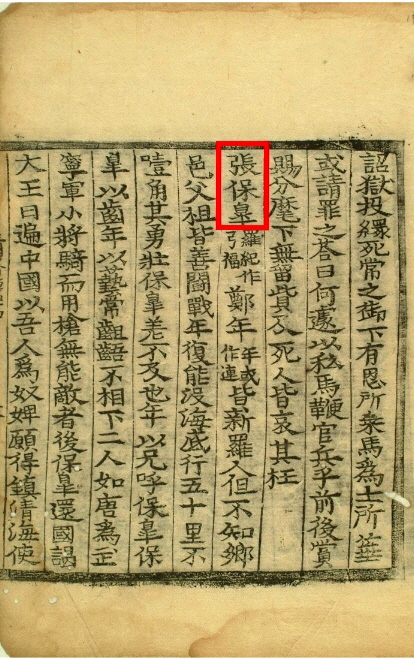 詔獄投繯死常之御下有恩所乘馬爲士所箠
或請罪之答曰何遽以私馬鞭官兵乎前後賞
賜分麾下無留貲及死人皆哀其枉
張保皐羅紀作弓福鄭年年或作連皆新羅人但不知鄕
邑父祖皆善鬪戰年復能沒海底行五十里不
噎角其勇壯保皐差不及也年以兄呼保皐保
皐以齒年以藝常齟齬不相下二人如唐爲武
寧軍小將騎而用槍無能敵者後保皐還國謁
大王曰遍中國以吾人爲奴婢願得鎭淸海使